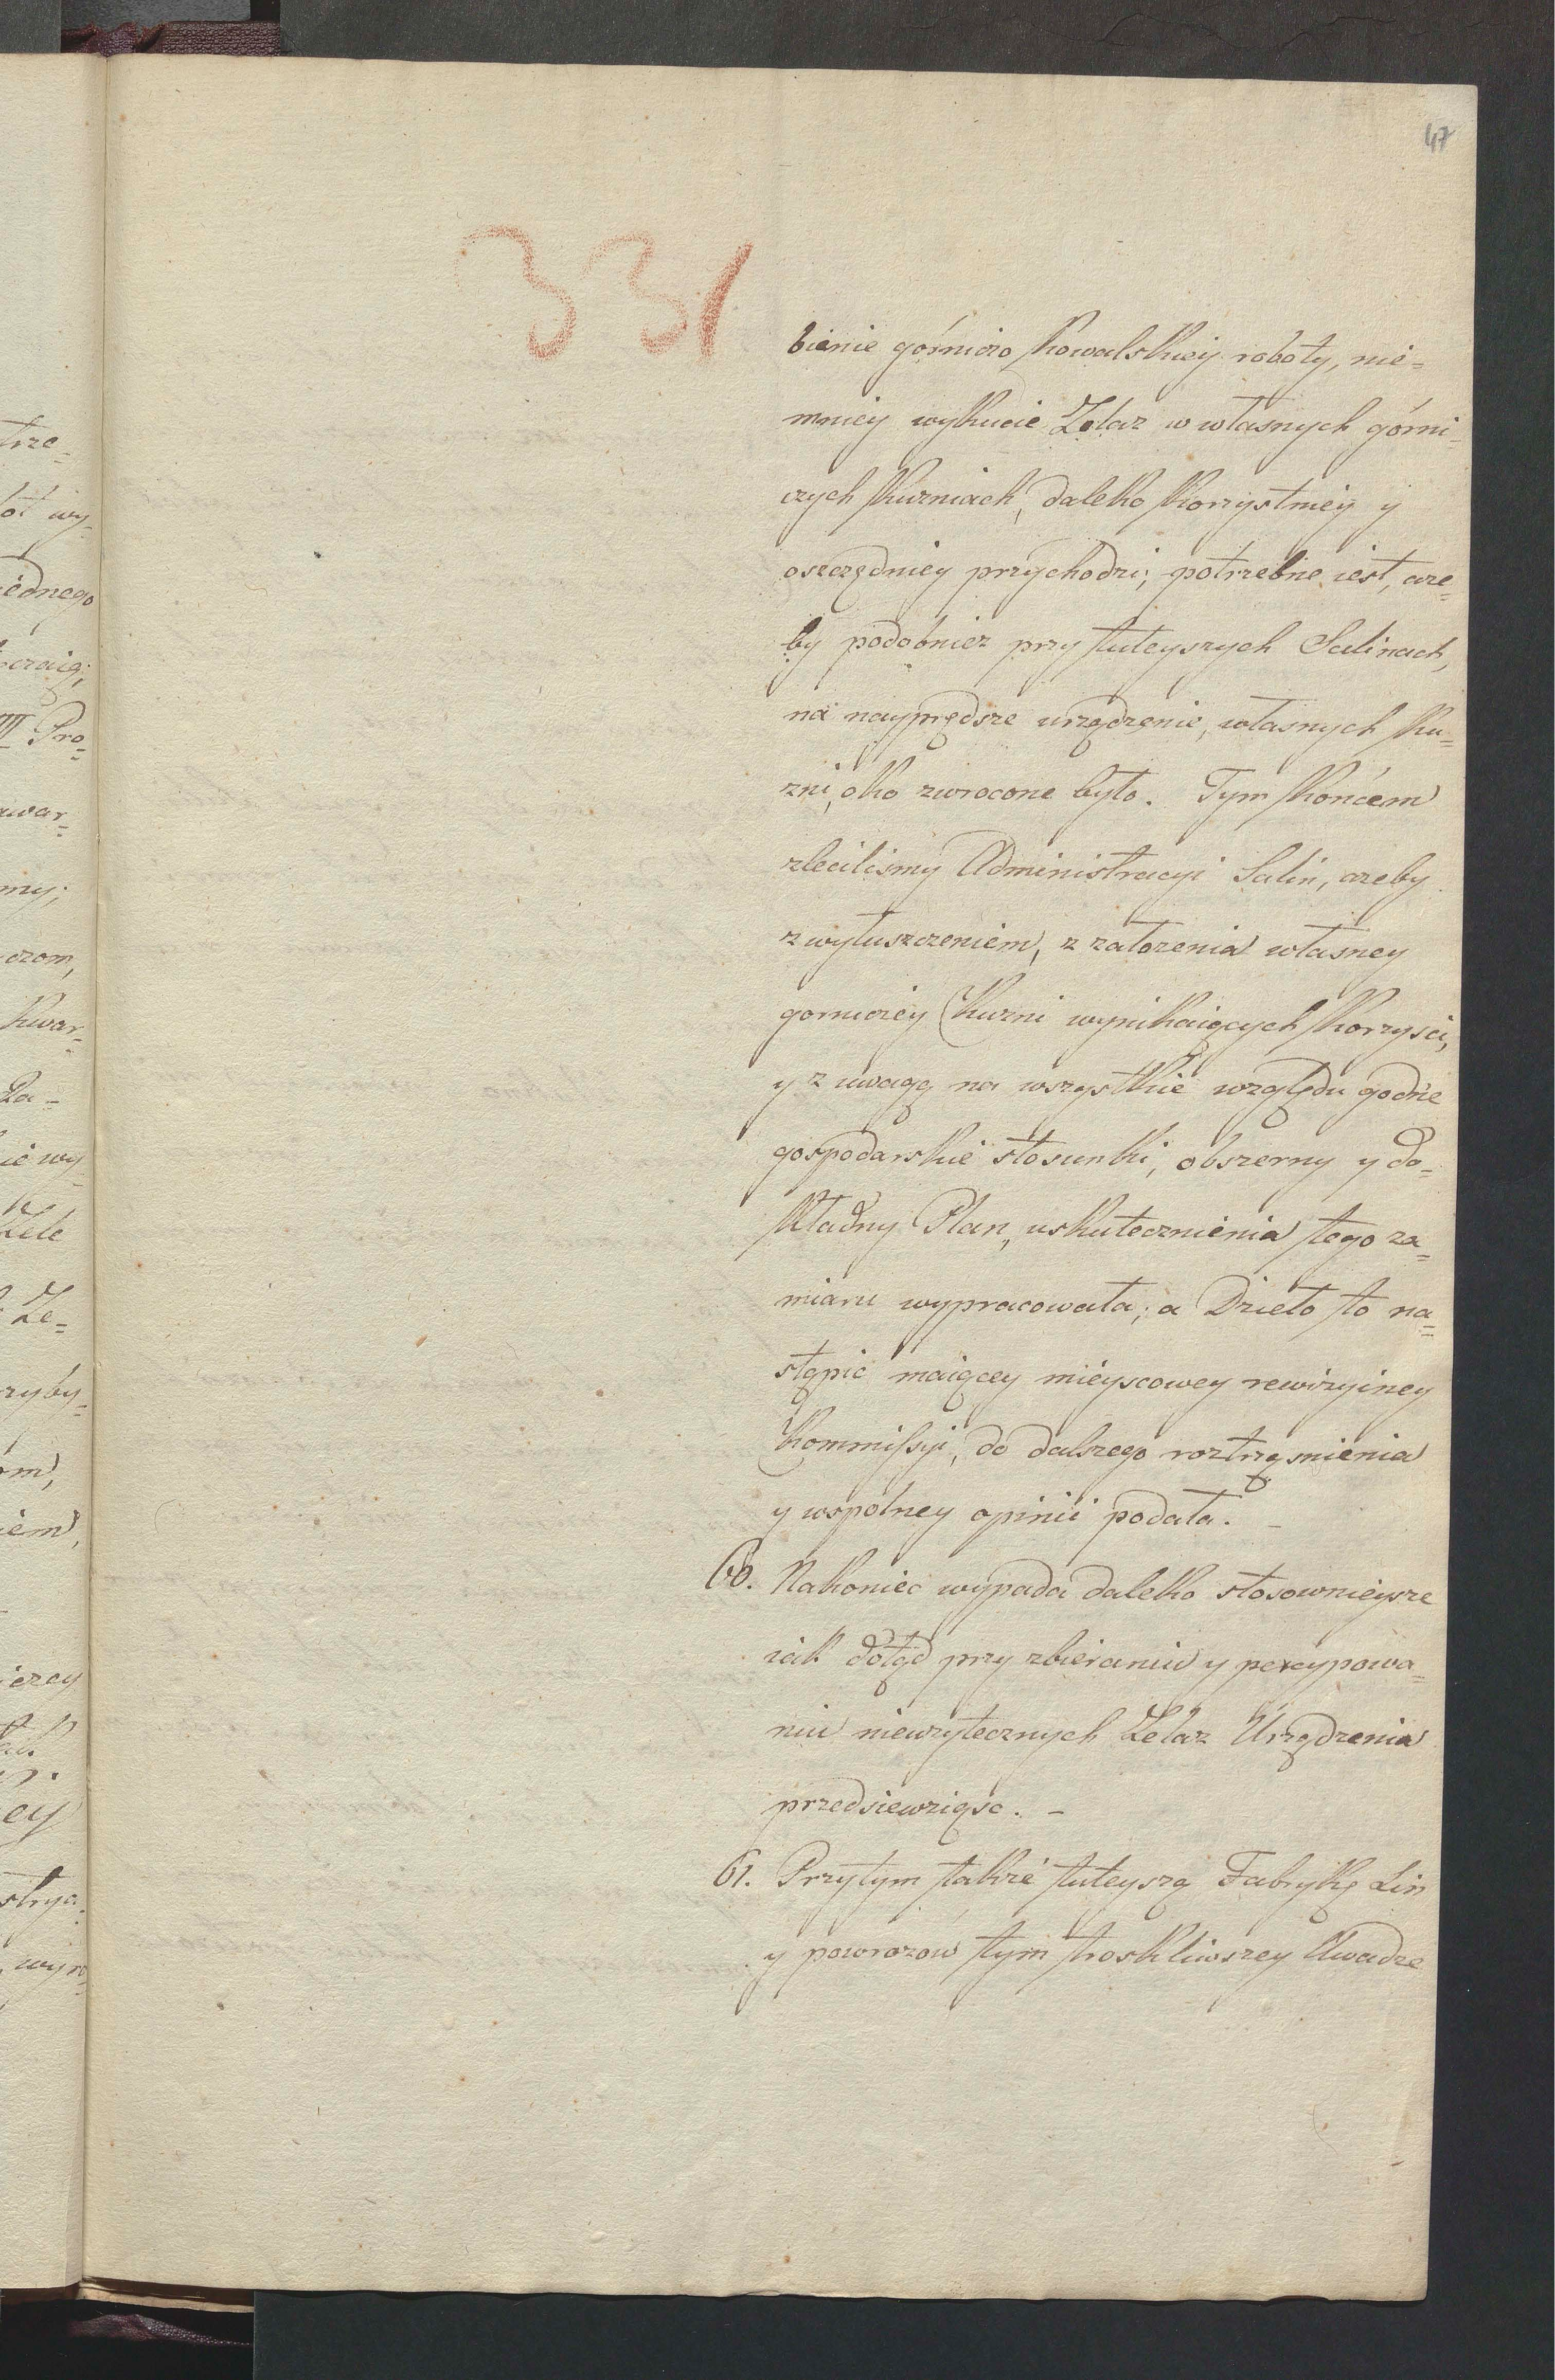 47
331
bienie górniczo Kowalskiey roboty, nie=
mniey wykucie Zelaz w własnych górni=
czych Kuzniach, daleko Korzystniey y
oszczędniey przychodzi; potrzebne iest, aze=
by podobniez przy tuteyszych Salinach,
na nayprędsze urządzenie, własnych Ku=
zni, oko zwrocone było. Tym Końcem
zleciliśmy Administracyi Salin, azeby
z wyłuszczeniem, z załozenia własney
gorniczey Kuzni wynikaiących Korzysci,
y z uwagą na wszystkie względu godne
gospodarskie stosunki, obszerny y do=
kładny Plan, uskutecznienia tego za=
miaru wypracowała; a Dzieło to na=
stąpić maiącey mieyscowey rewizyiney
Kommissyi, do dalszego roztrząsnienia
y wspólney opinii podała. –
60. Nakoniec wypada daleko stosownieysze
iak dotąd przy zbieraniu y percypowa=
niu nieuzytecznych Zelaz Urządzenia
przedsiewziąsc. –
61. Przytym takze tuteyszą Fabrykę Lin
y powrozow tym troskliwszey Uwadze
trze=
ot wy=
iednego
III Pro=
war=
my;
czom,
kwar=
Za=
ie wy=
Zele
Ze=
zyby=
om,
iem,
ierey
ey